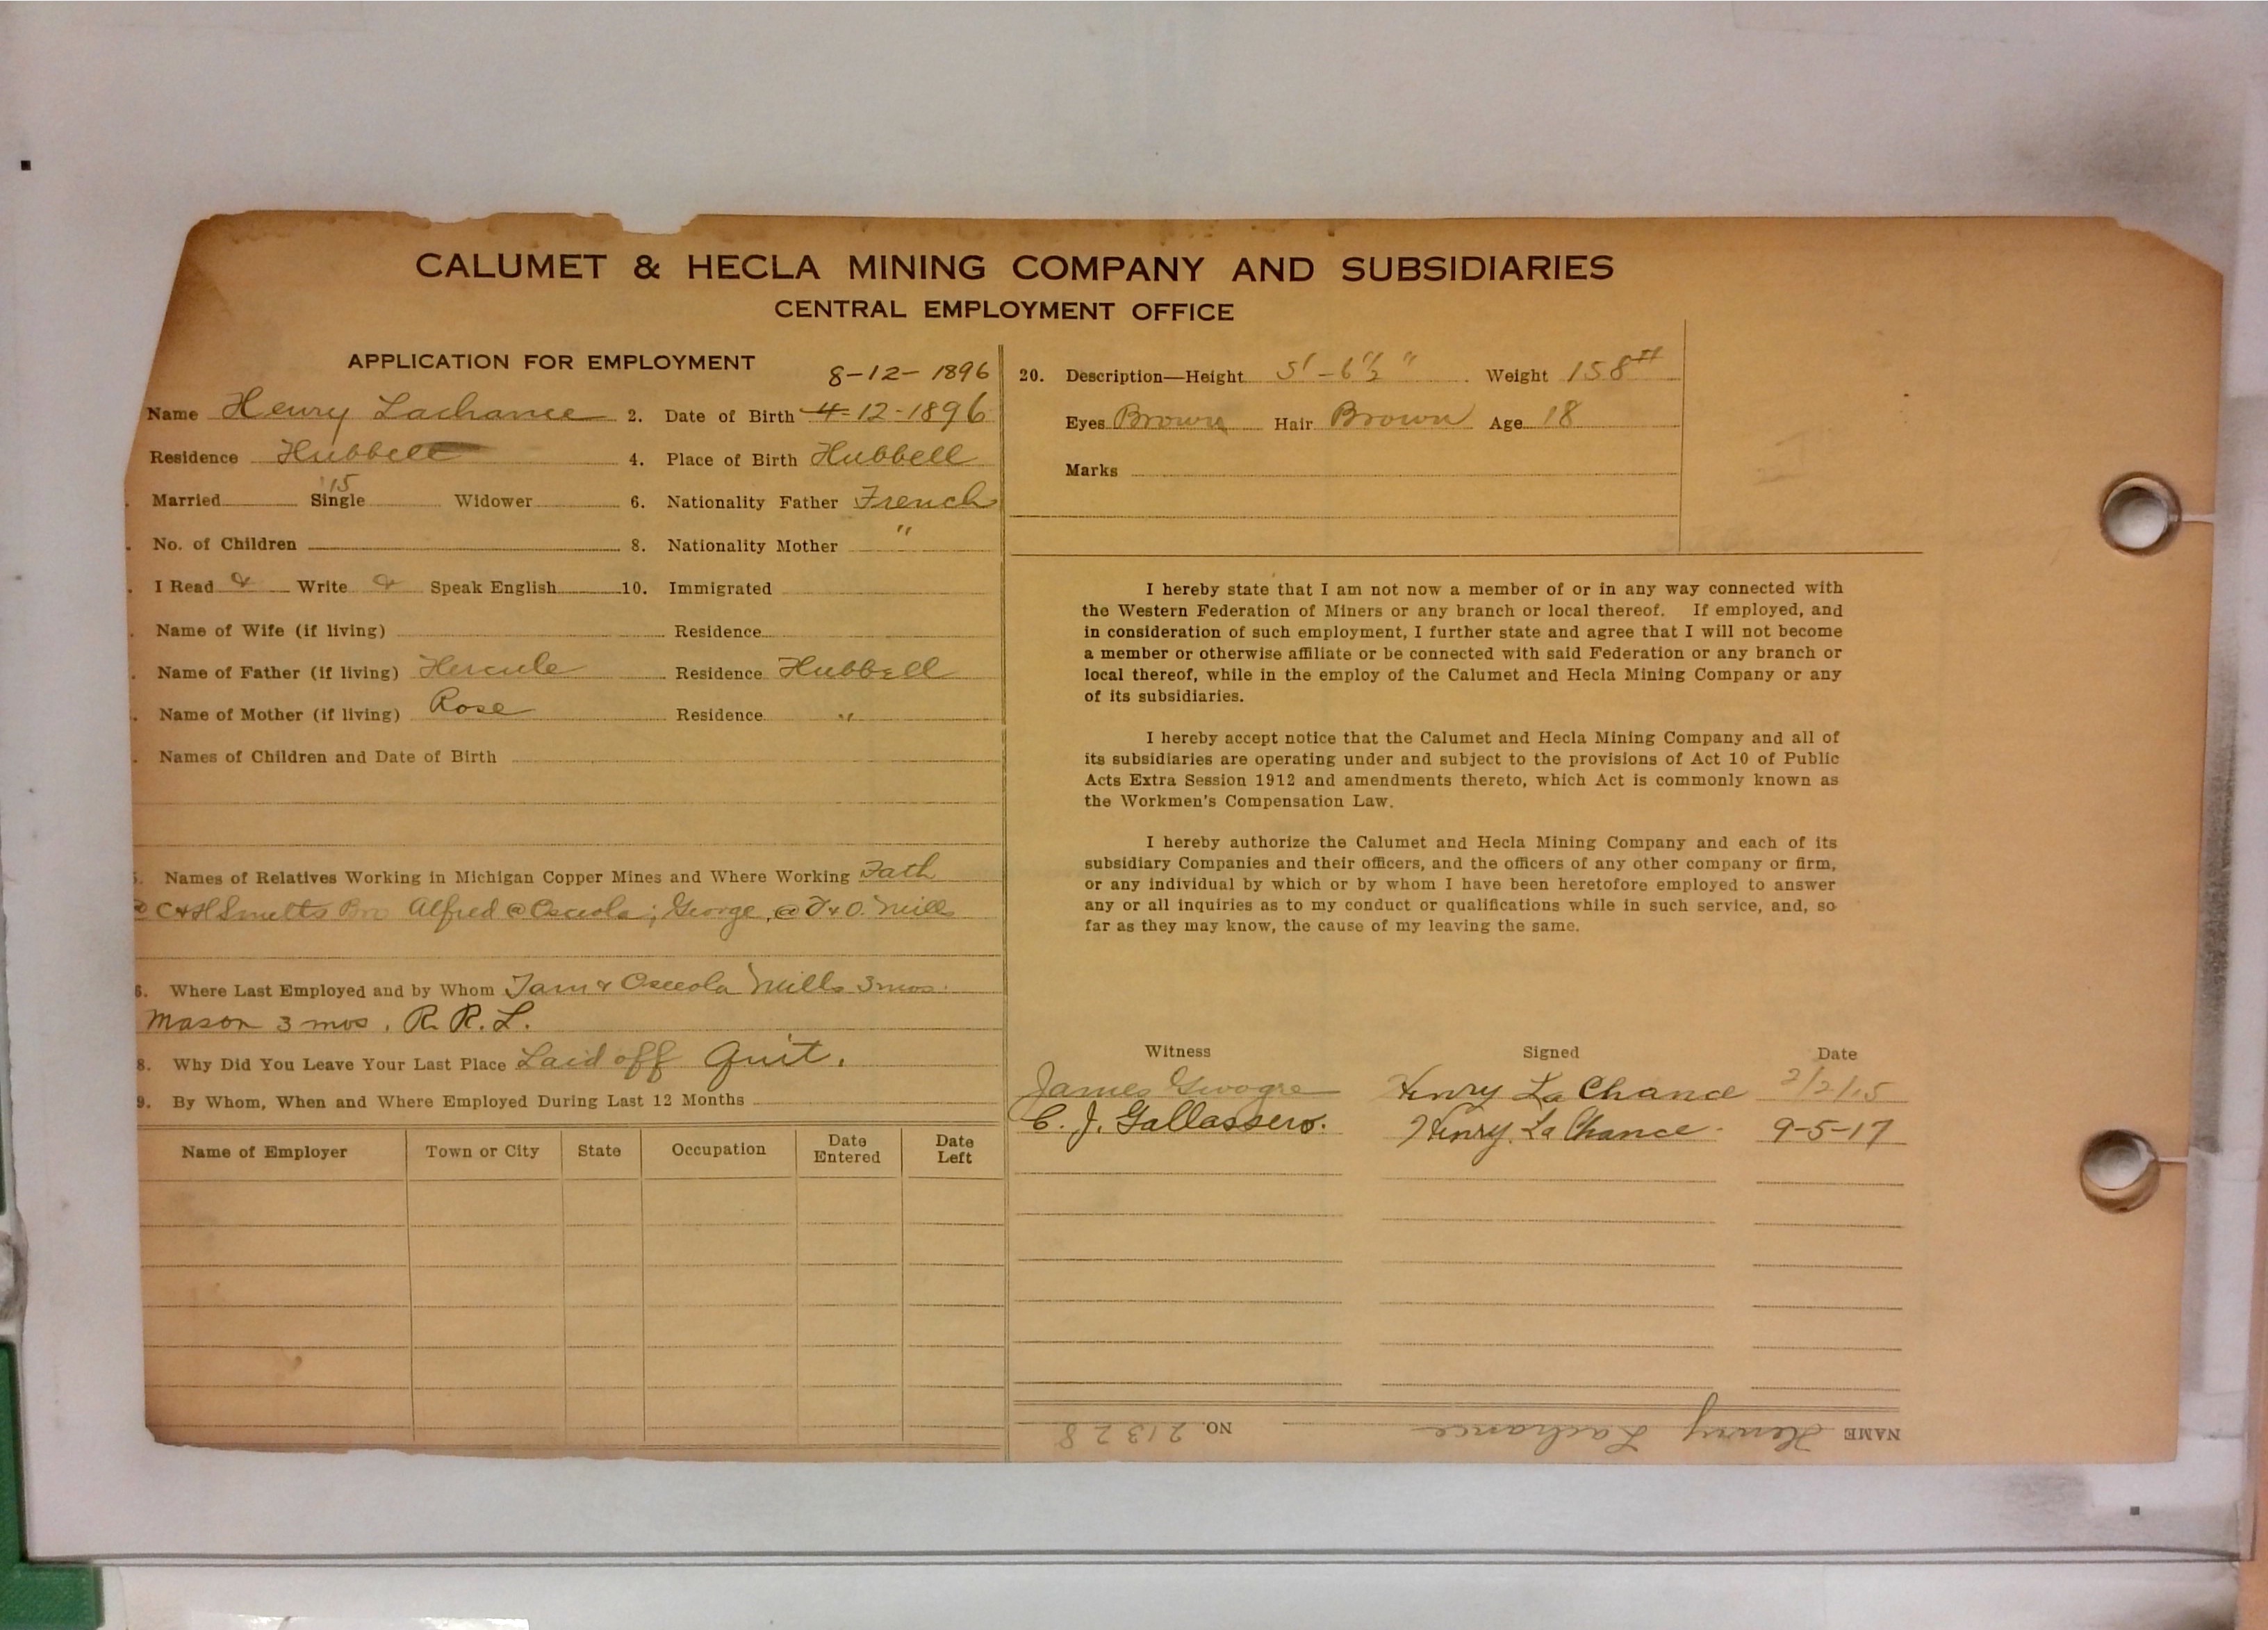 CALUMET & HECLA MINING COMPANY AND SUBSIDIARIES
CENTRAL EMPLOYMENT OFFICE
APPLICATION FOR EMPLOYMENT
8-12-1896
Name Henry Lachance 2. Date of Birth 4-12-1896
Residence Hubbell 4. Place of Birth Hubbell
'15
Married Single Widower 6. Nationality Father French
No. of Children 8. Nationality Mother "
I Read & Write & Speak English 10. Immigrated
Name of Wife (if living) Residence
Name of Father (if living) Hercule Residence Hubbell
Name of Mother (if living) Rose Residence "
Names of Children and Date of Birth
Names of Relatives Working in Michigan Copper Mines and Where Working Fath
@ C&H Smelts Bro Alfred @ Osceola; George, @ T & O. Mills
6. Where Last Employed and by Whom Tam & Osceola Mills 3 mos.
Mason 3 mos. R. R. L.
8. Why Did You Leave Your Last Place Laid off Quit.
9. By Whom, When and Where Employed During Last 12 Months
Name of Employer Town or City State Occupation Date Entered Date Left
20. Description—Height 5'-6½" Weight 158#
Eyes Brown Hair Brown Age 18
Marks
I hereby state that I am not now a member of or in any way connected with
the Western Federation of Miners or any branch or local thereof. If employed, and
in consideration of such employment, I further state and agree that I will not become
a member or otherwise affiliate or be connected with said Federation or any branch or
local thereof, while in the employ of the Calumet and Hecla Mining Company or any
of its subsidiaries.
I hereby accept notice that the Calumet and Hecla Mining Company and all of
its subsidiaries are operating under and subject to the provisions of Act 10 of Public
Acts Extra Session 1912 and amendments thereto, which Act is commonly known as
the Workmen's Compensation Law.
I hereby authorize the Calumet and Hecla Mining Company and each of its
subsidiary Companies and their officers, and the officers of any other company or firm,
or any individual by which or by whom I have been heretofore employed to answer
any or all inquiries as to my conduct or qualifications while in such service, and, so
far as they may know, the cause of my leaving the same.
Witness Signed Date
James Henry La Chance 2/2/15
C. J. Gallassero. Henry La Chance. 9-5-17
NAME Henry Lachance NO. 21328